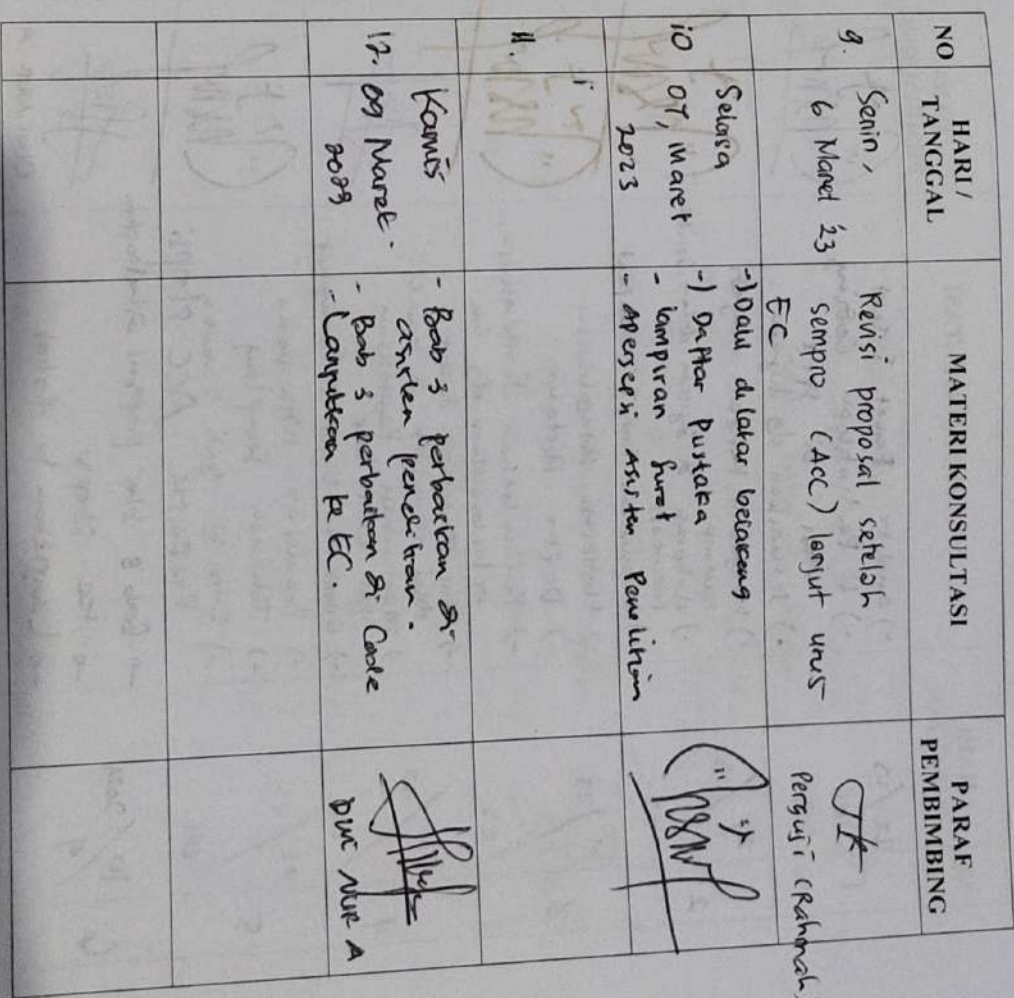 NO
HARI / TANGGAL
MATERI KONSULTASI
PARAF PEMBIMBING
9.
Senin,
6 Maret '23
Revisi proposal setelah
sempro (ACC) lanjut urus
EC
Penguji (Rahmah)
10
Selasa
07, Maret
2023
-) Dalil di latar belakang
-) Daftar Pustaka
- lampiran Surat
- Apersepsi Asisten Penelitian
11.
12.
Kamis
09 Maret.
- Bab 3 perbaikan di
asisten penelitian.
- Bab 3 perbaikan di Code
- Lanjutkan ke EC.
DWI NUR A